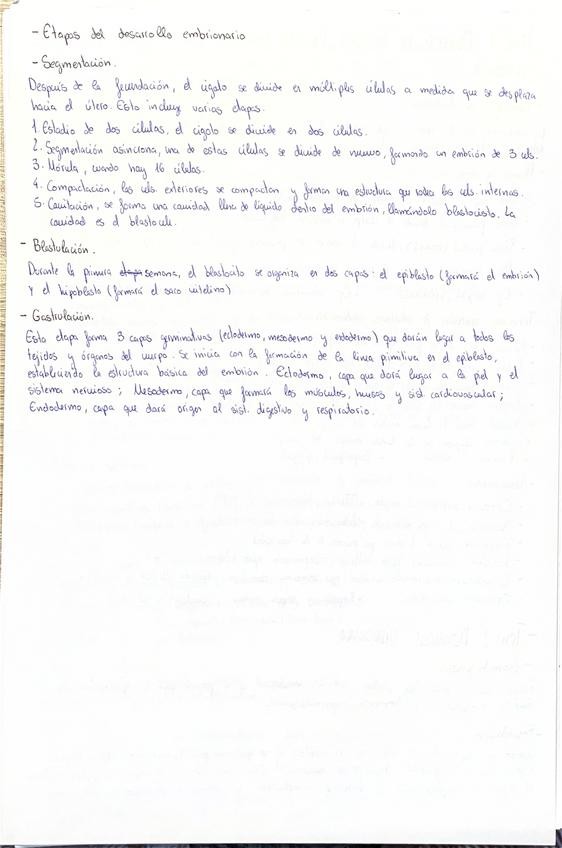 - Etapas del desarrollo embrionario
- Segmentación.
Después de la fecundación, el cigoto se divide en múltiples células a medida que se desplaza
hacia el útero. Esto incluye varias etapas.
1. Estadio de dos células, el cigoto se divide en dos células.
2. Segmentación asíncrona, una de estas células se divide de nuevo, formando un embrión de 3 cels.
3. Mórula, cuando hay 16 células.
4. Compactación, las cels exteriores se compactan y forman una estructura que rodea las cels. internas.
5. Cavitación, se forma una cavidad llena de líquido dentro del embrión, llamándolo blastocisto. La
cavidad es el blastocele.
- Blastulación.
Durante la primera semana, el blastocito se organiza en dos capas: el epiblasto (formará el embrión)
y el hipoblasto (formará el saco vitelino)
- Gastrulación.
Esta etapa forma 3 capas germinativas (ectodermo, mesodermo y endodermo) que darán lugar a todos los
tejidos y órganos del cuerpo. Se inicia con la formación de la línea primitiva en el epiblasto,
estableciendo la estructura básica del embrión. Ectodermo, capa que dará lugar a la piel y el
sistema nervioso; Mesodermo, capa que formará los músculos, huesos y sist. cardiovascular;
Endodermo, capa que dará origen al sist. digestivo y respiratorio.